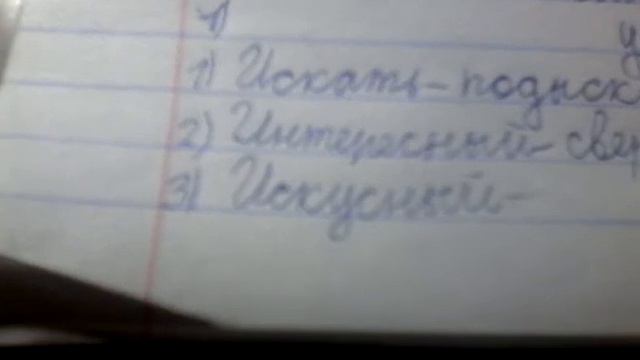 1)
1) Искать - подыск
2) Интересный - свер
3) Искусный -